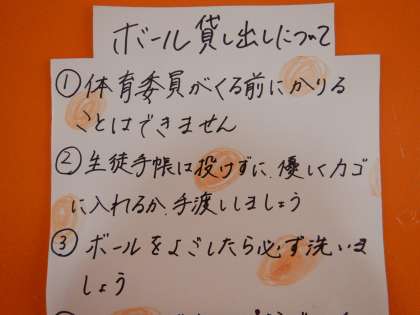 ボール貸し出しについて
①体育委員がくる前にかりる
ことはできません
②生徒手帳は投げずに、優しくカゴ
に入れるか、手渡ししましょう
③ボールをよごしたら必ず洗いま
しょう